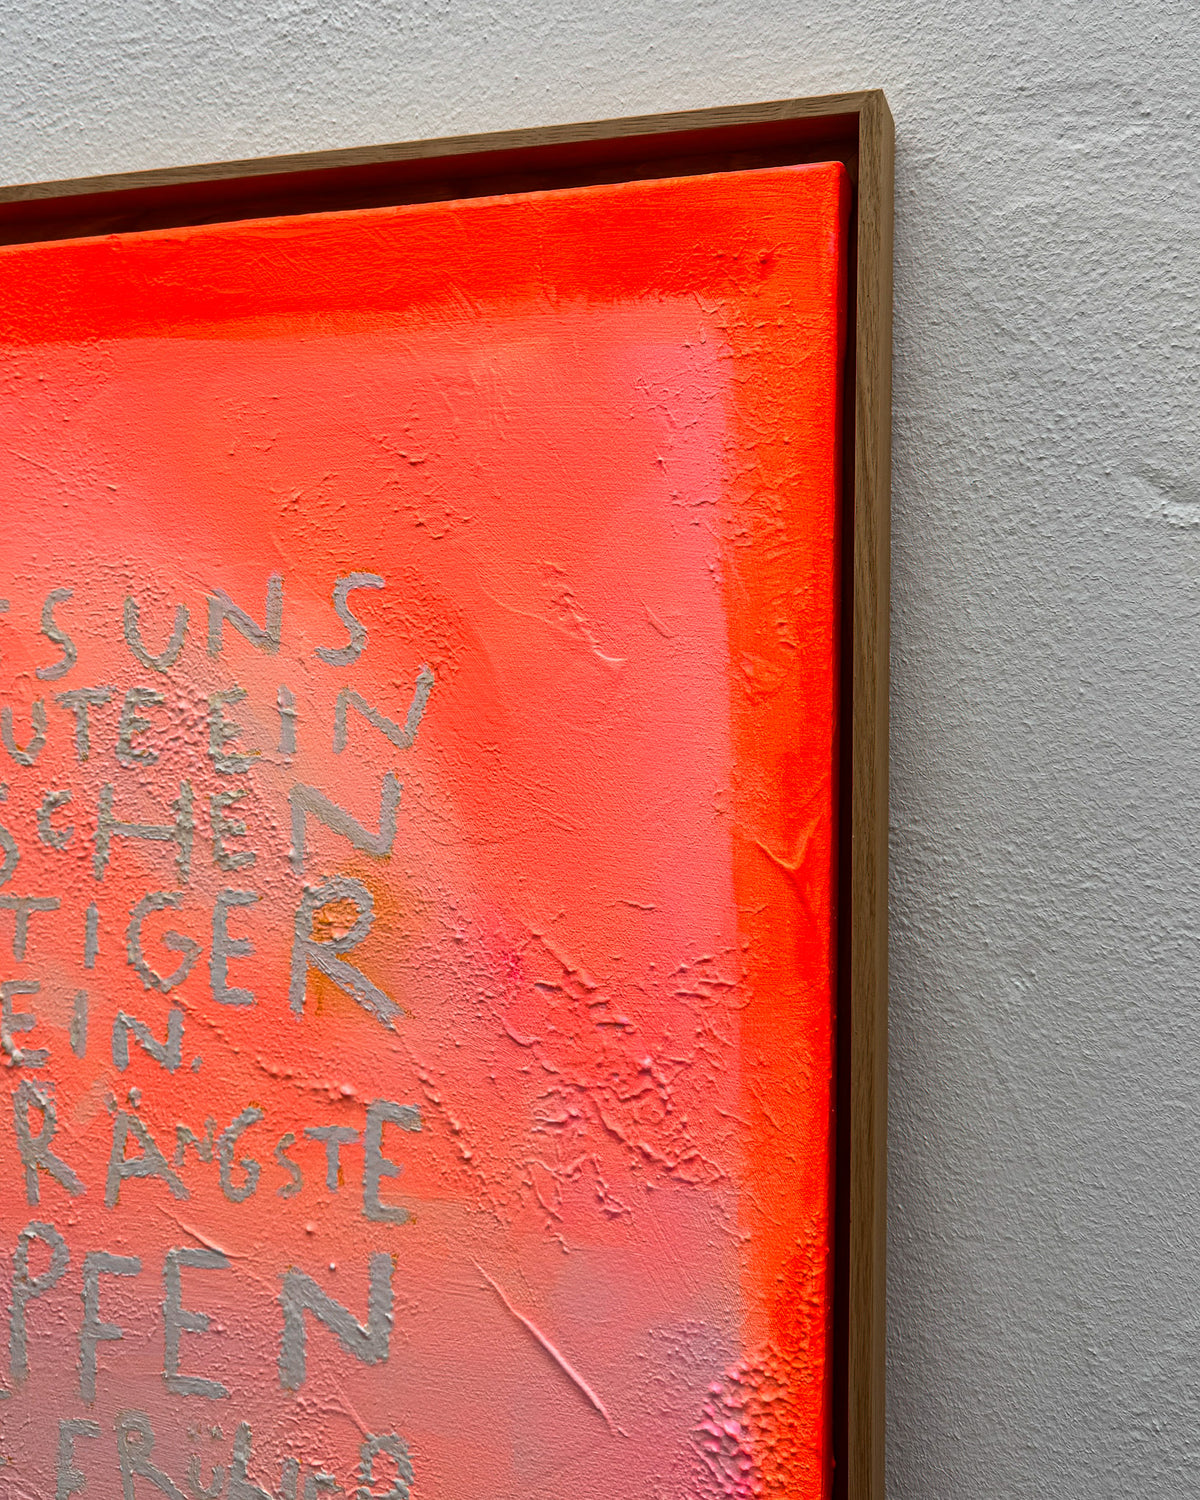 SS UNS
UTE EIN
SCHEN
TIGER
EIN,
R ÄNGSTE
PFEN
FRÜHER